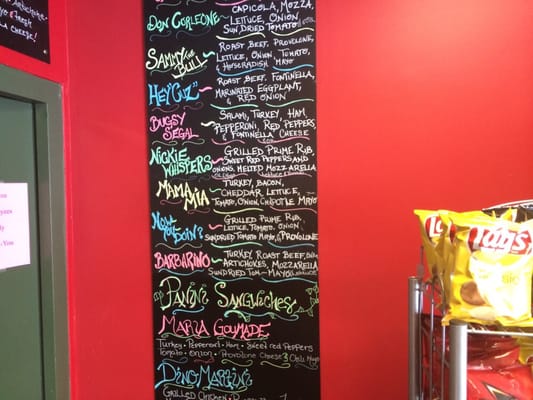 & CHEESE!
CAPICOLA, MOZZA,
DON CORLEONE
LETTUCE, ONION
SUN DRIED TOMATO
ROAST BEEF, PROVOLONE,
SAMMY THE BULL
LETTUCE, ONION, TOMATO,
& HORSERADISH MAYO
ROAST BEEF, FONTINELLA,
HEY CUZ"
MARINATED EGGPLANT,
& RED ONION
SALAMI, TURKEY, HAM,
BUGSY SEGAL
PEPPERONI, RED PEPPERS
& FONTINELLA CHEESE
NICKIE WHISPERS
GRILLED PRIME RIB,
SWEET RED PEPPERS AND
ONIONS, MELTED MOZZARELLA
MAMA MIA
TURKEY, BACON,
CHEDDAR, LETTUCE,
TOMATO, ONION, CHIPOTLE MAYO
HOW YOU DOIN?
GRILLED PRIME RIB,
LETTUCE, TOMATO, ONION,
SUNDRIED TOMATO MAYO, & PROVOLONE
BARBARINO
TURKEY, ROAST BEEF,
ARTICHOKES, MOZZARELLA
SUNDRIED TOM-MAYO
PANINI SANGWICHES
MARIA GOUMADE
Turkey • Pepperoni • Ham • Sweet red Peppers
Tomato • Onion • Provolone Cheese & Chili Mayo
DINO MARTINI
GRILLED CHICKEN •
Lay's
Lay's